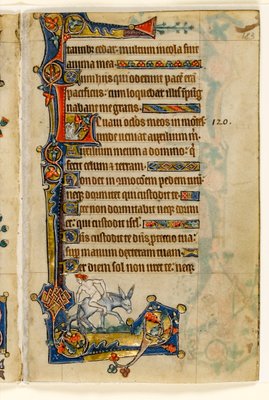 tantib; cedar: multum incola fuit
anima mea
Cum hijs qui oderunt pacē erā
pacificus: cum loquebar illis īpug
nabant me gratis.
Leuaui oclos meos in mōtes 120.
unde ueniat auxilium m.
Auxilium meum a domino: q̄
fecit celum et terram.
Non det in pedem tuū:
neq; dormitet qui custodit te.
Ecce non dormitabit neq; dormi
et: qui custodit isrl.
Dn̄s custodit te dn̄s ptectio tua:
sup manum dexteram tuam
Per diem sol non uret te: neq;